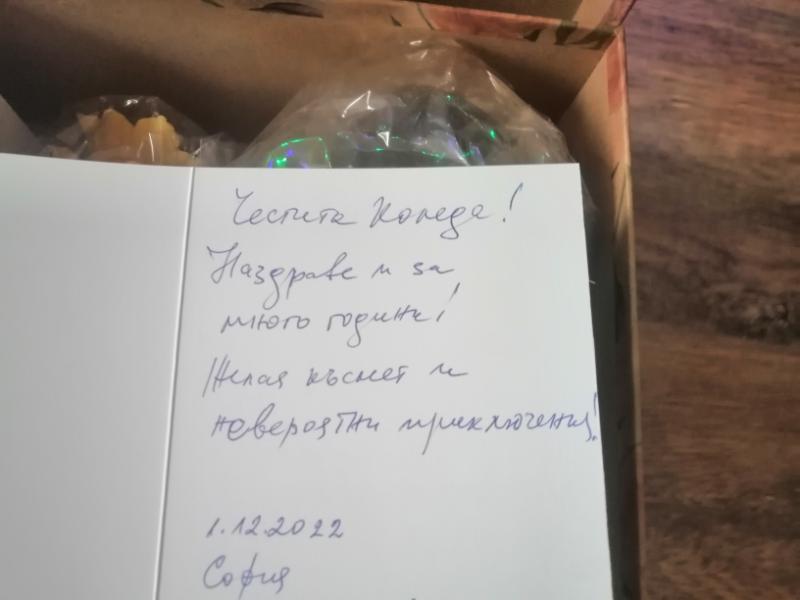 Честита Коледа!
Наздраве и за
много години!
Желая късмет и
невероятни приключения!
1.12.2022
София